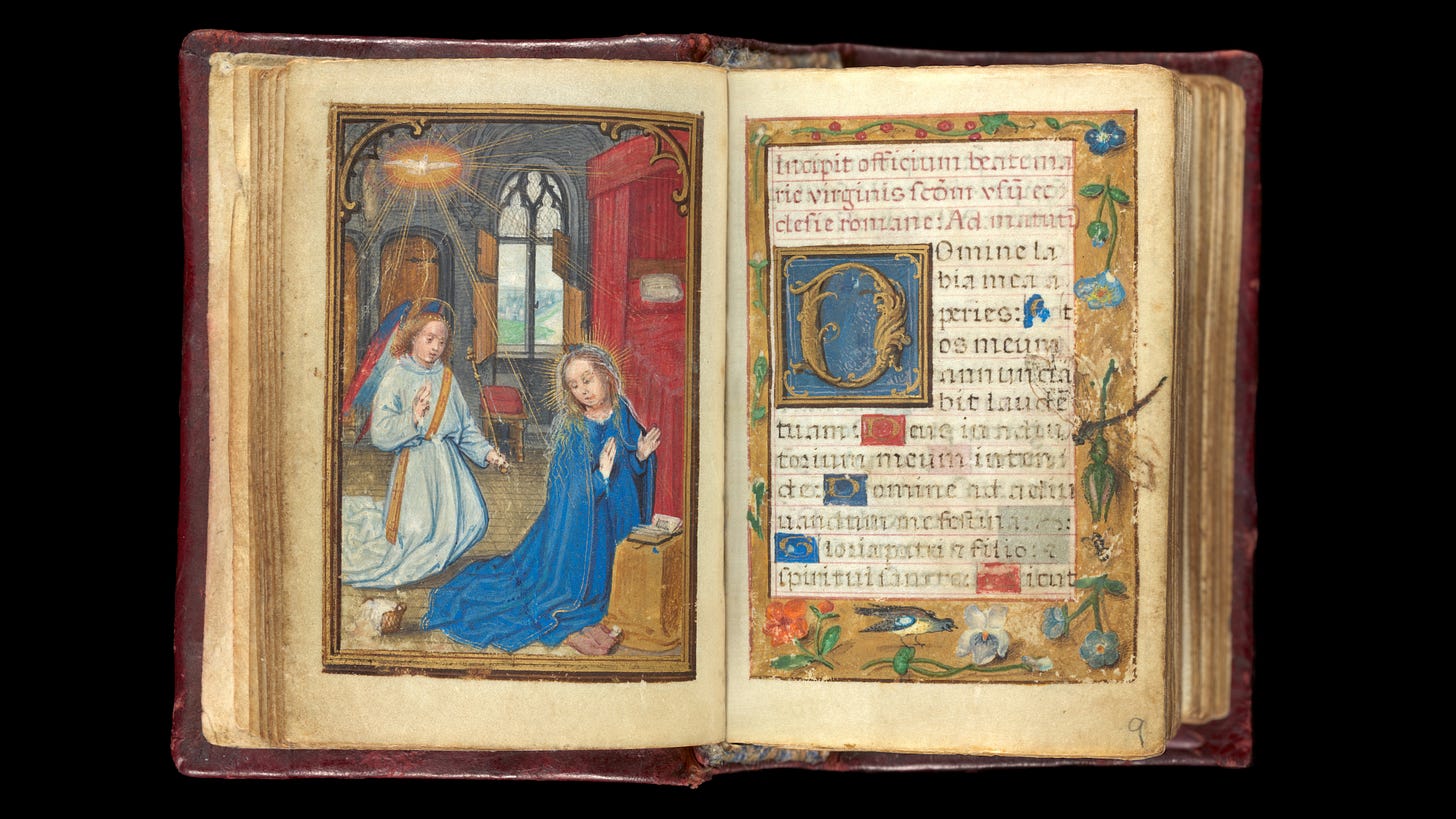 Incipit officium beate ma
rie virginis scd̄m vsū ec
clesie romane: Ad matutī
Domine la
bia mea a
peries: Et
os meum
annuncia
bit laudē
tuam: Deus in adiu
torium meum inten
de: Domine ad adiu
uandum me festina:
Gloria patri ⁊ filio: ⁊
spiritui sancto: Sicut
9